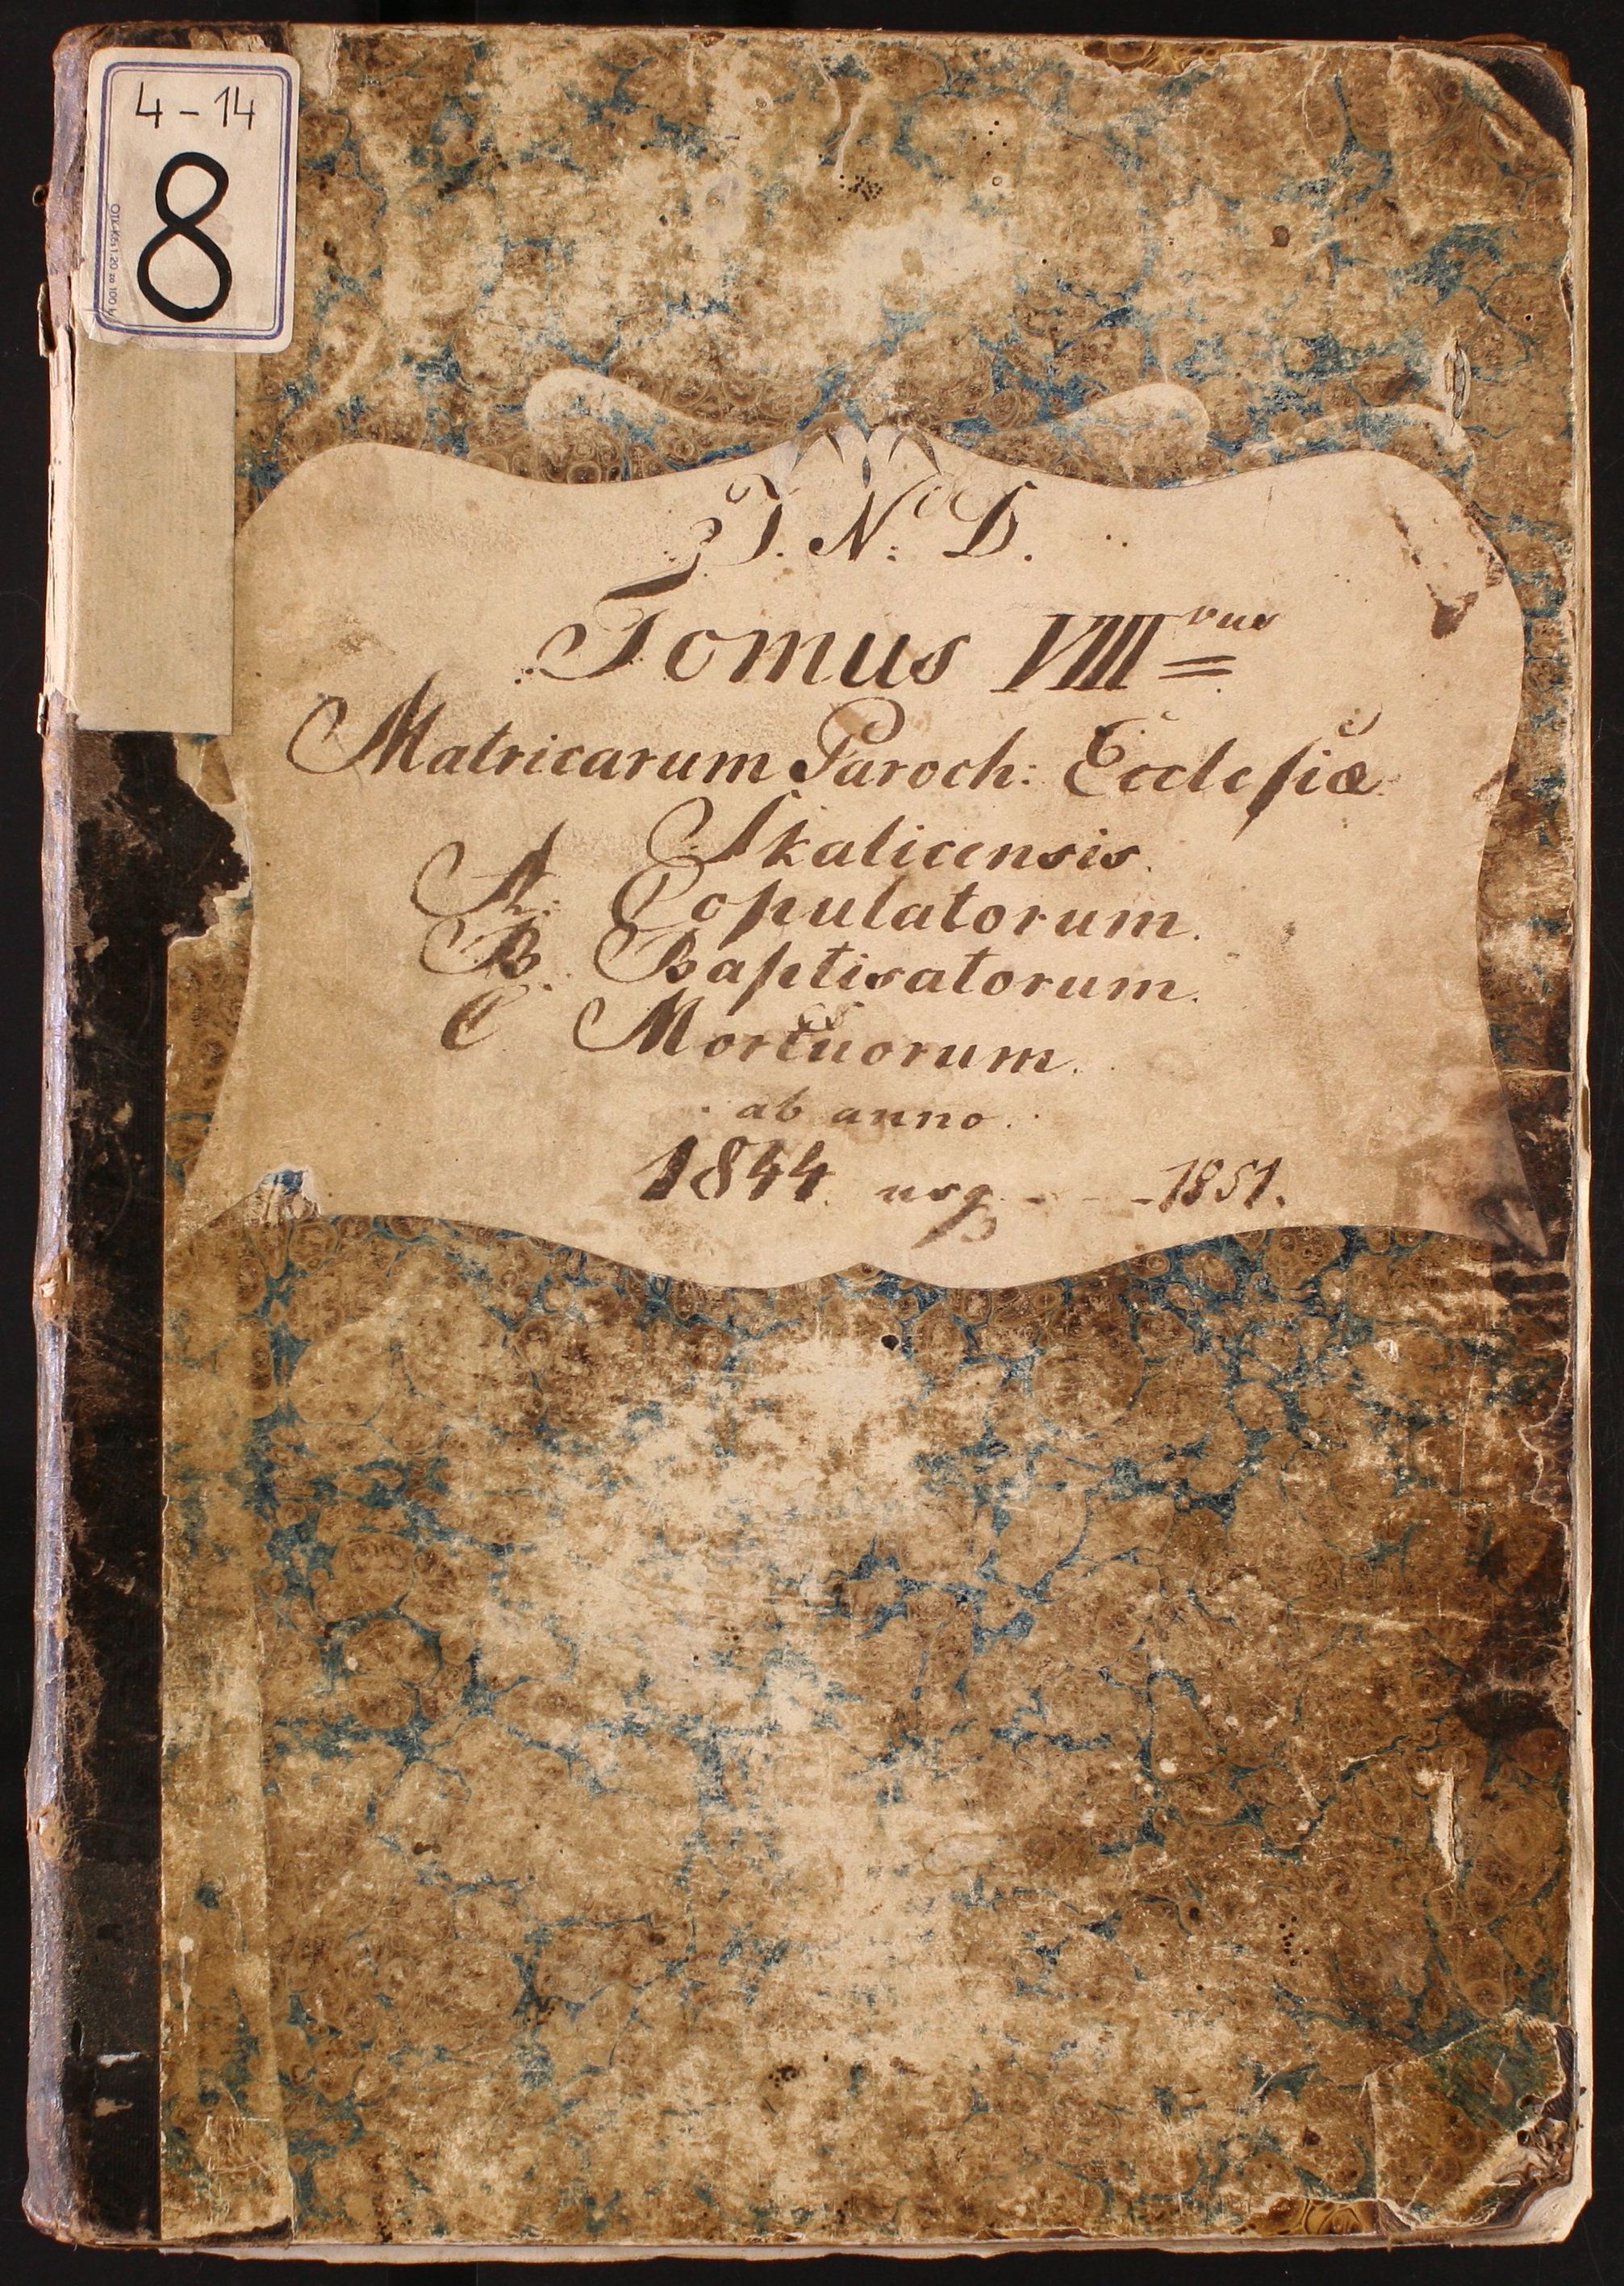 4-14
8
I. N. D.
Tomus VIII vus
Matricarum Paroch: Ecclesiæ
Skalicensis.
A. Copulatorum.
B. Baptisatorum.
C Mortuorum.
ab anno
1844 usq - - -1851.